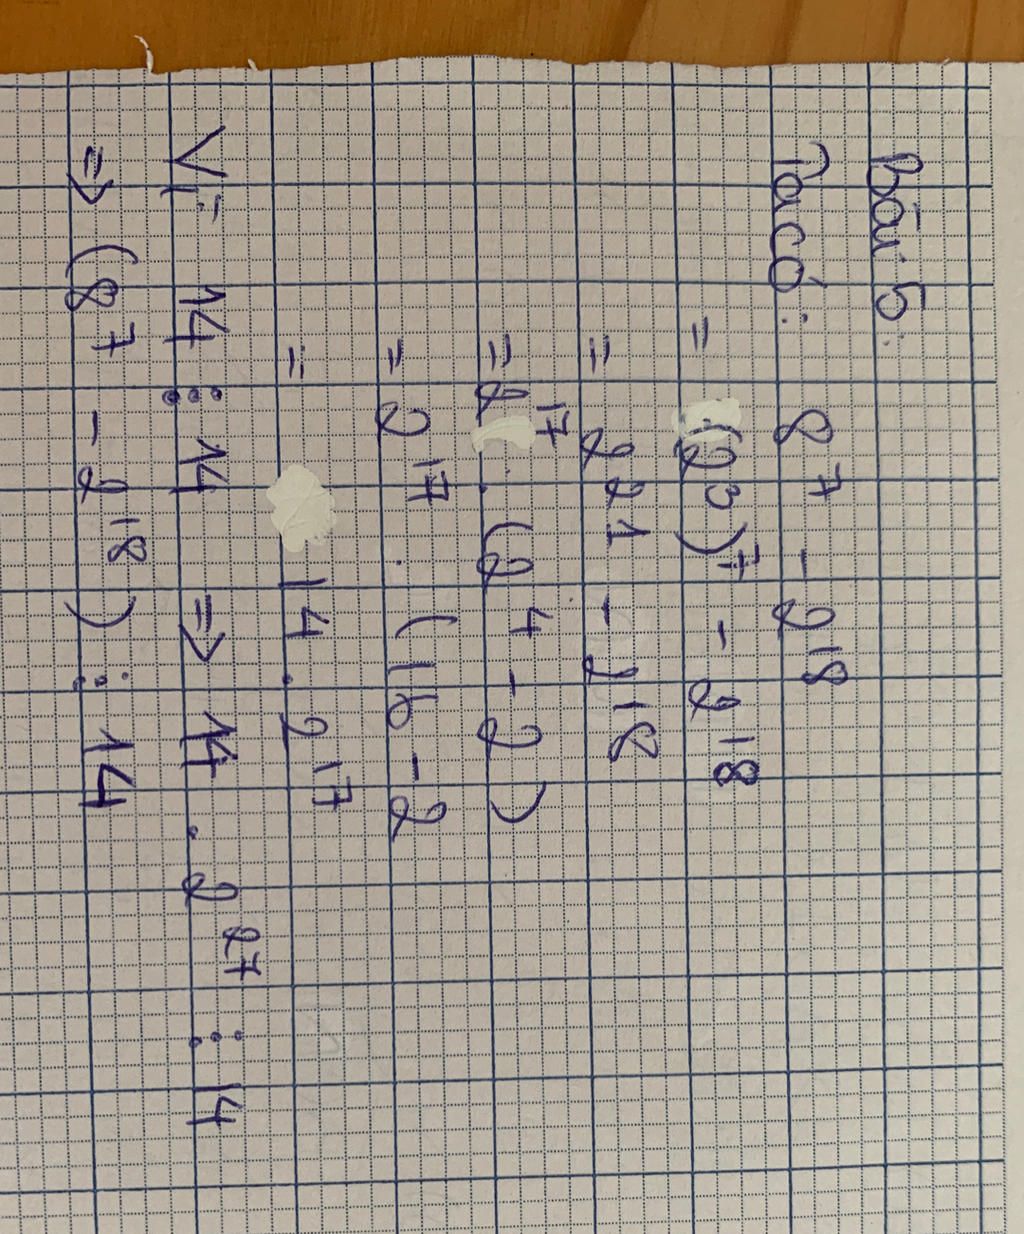 Bài 5:
Ta có: 8⁷ - 2¹⁸
= (2³)⁷ - 2¹⁸
= 2²¹ - 2¹⁸
= 2¹⁷ . (2⁴ - 2)
= 2¹⁷ . (16 - 2
= 14 . 2¹⁷
Vì 14 ⋮ 14 => 14 . 2²⁷ ⋮ 14
=> (8⁷ - 2¹⁸) ⋮ 14